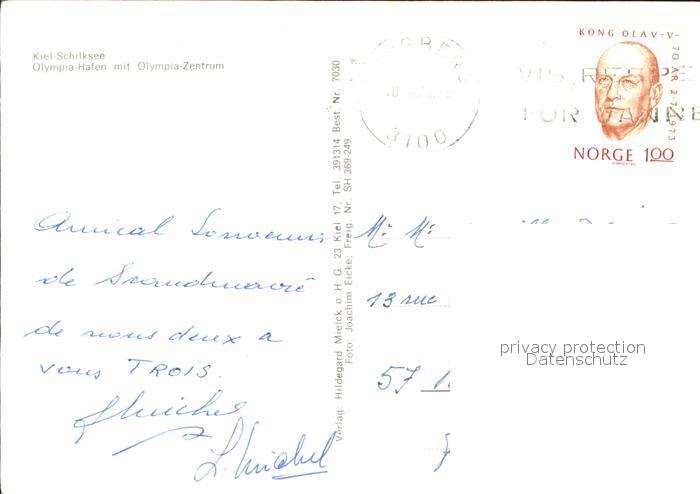 Kiel-Schilksee
Olympia-Hafen mit Olympia-Zentrum
KONG OLAV-V-
70 ÅR 2-7-1973
NORGE 100
3100
Verlag: Hildegard Mielck o. H. G. 23 Kiel 17, Tel. 391314 Best. Nr. 7030
Foto: Joachim Eicke; Freig. Nr. SH 369-249
Amical Souvenir
de Scandinavie
de nous deux a
vous TROIS.
Michel
L. Michel
13 rue
57
privacy protection
Datenschutz